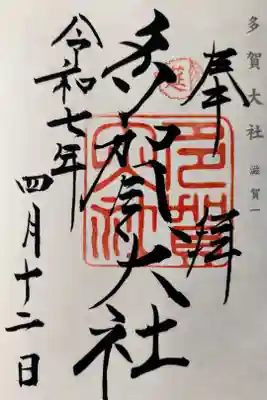 多賀大社 滋賀一
奉拝
多賀
大社
多賀大社
令和七年
四月十二日